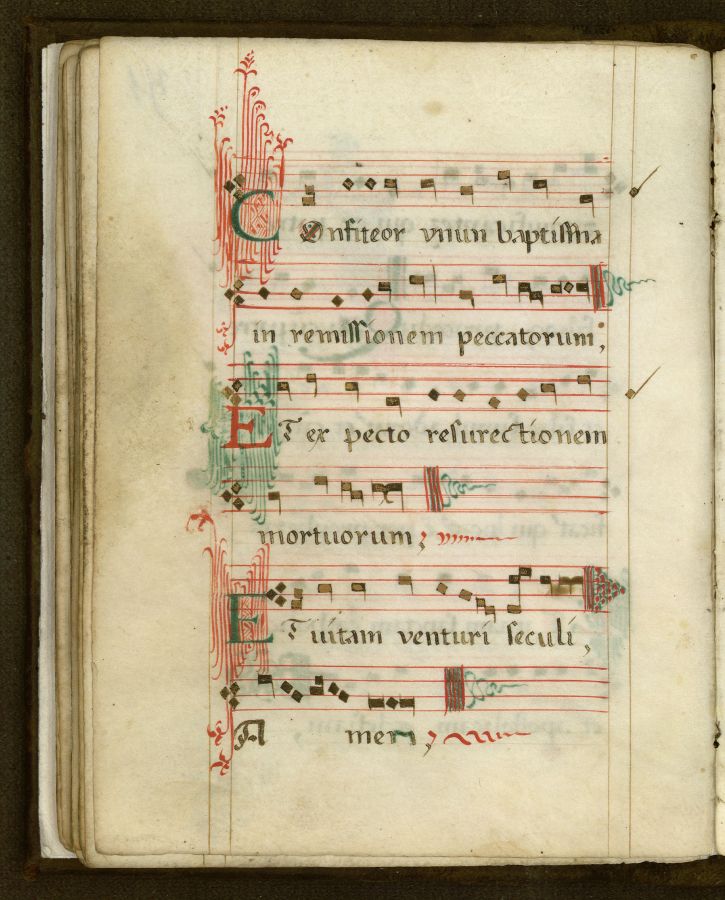 COnfiteor vnun baptisma
in remissionem peccatorum;
ET ex pecto resurectionem
mortuorum;
ET uitam venturi seculi,
A men;